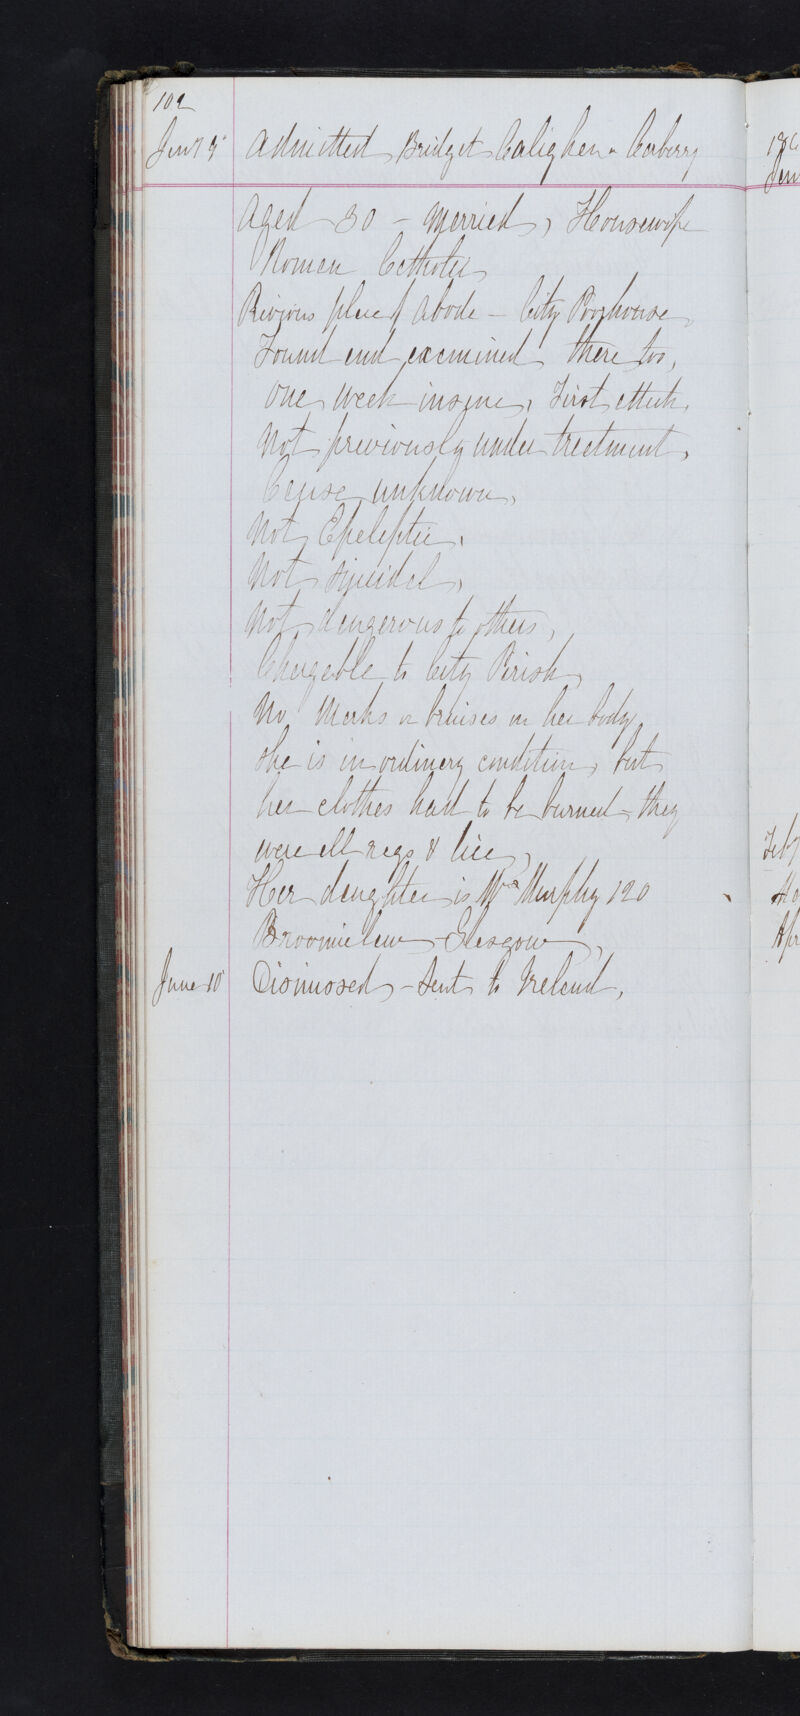 102
Jany 9th Admitted Bridget Calighan or Carberry
Aged 30 - Married, Housewife
Roman Catholic
Previous place of abode - City Poorhouse
Found and examined there too,
One week insane, First attack,
Not previously under treatment,
Cause unknown,
Not Epileptic,
Not suicidal,
Not dangerous to others,
Chargeable to City Parish
No marks or bruises on her body
She is in ordinary condition, but
her clothes had to be burned - they
were all rags & lice,
Her daughter is Mrs Murphy 120
Broomielaw - Glasgow,
June 10th Dismissed - sent to Ireland,
186
Jan
Feby
Ap